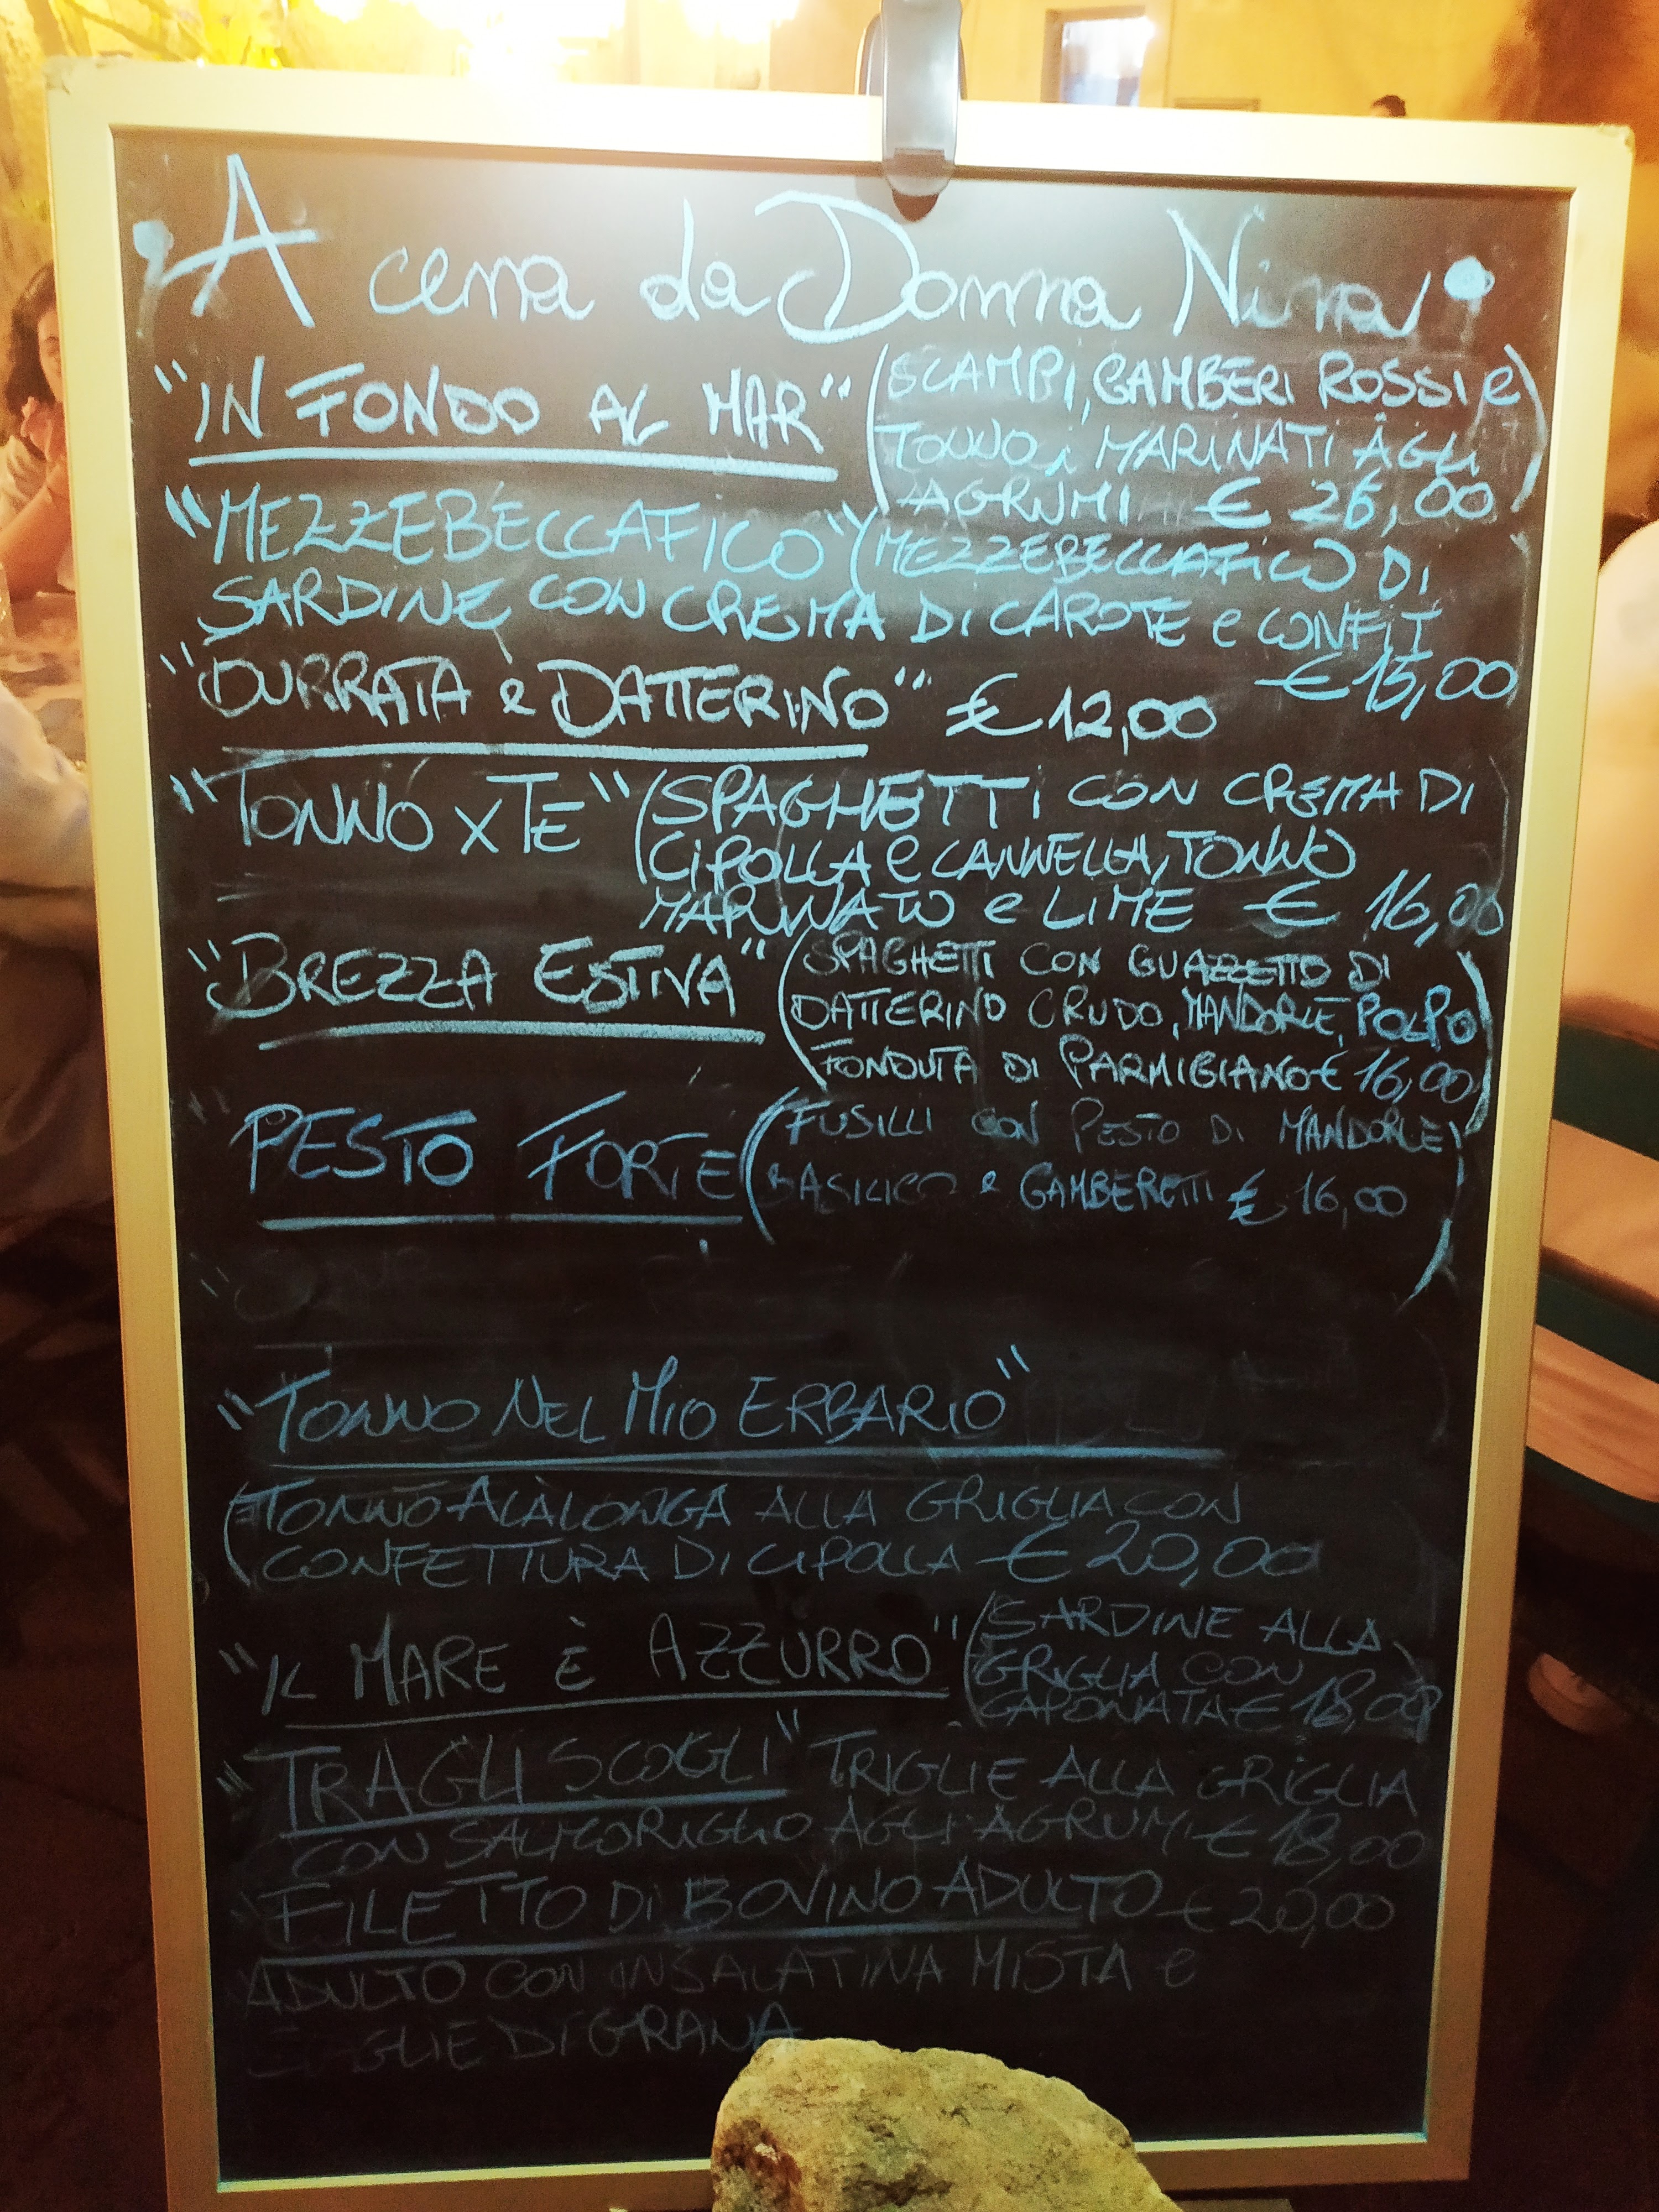 A cena da Donna Nina
"IN FONDO AL MAR" (SCAMPI, GAMBERI ROSSI e
TONNO, MARINATI AGLI
AGRUMI € 26,00)
"MEZZEBECCAFICO" (MEZZEBECCAFICO DI
SARDINE CON CREMA DI CAROTE e CONFIT
€ 15,00
"BURRATA e DATTERINO" € 12,00
"TONNO x TE" (SPAGHETTI CON CREMA DI
CIPOLLA e CANNELLA, TONNO
MARINATO e LIME € 16,00
"BREZZA ESTIVA" (SPAGHETTI CON GUAZZETTO DI
DATTERINO CRUDO, MANDORLE, POLPO
FONDUTA DI PARMIGIANO € 16,00)
PESTO FORTE (FUSILLI CON PESTO DI MANDORLE,
BASILICO e GAMBERETTI € 16,00)
"TONNO NEL MIO ERBARIO"
(TONNO ALALONGA ALLA GRIGLIA CON
CONFETTURA DI CIPOLLA € 20,00
"IL MARE È AZZURRO" (SARDINE ALLA
GRIGLIA CON
CAPONATA € 18,00)
"TRA GLI SCOGLI" TRIGLIE ALLA GRIGLIA
CON SALMORIGLIO AGLI AGRUMI € 18,00
FILETTO DI BOVINO ADULTO € 20,00
ADULTO CON INSALATINA MISTA e
DI GRANA